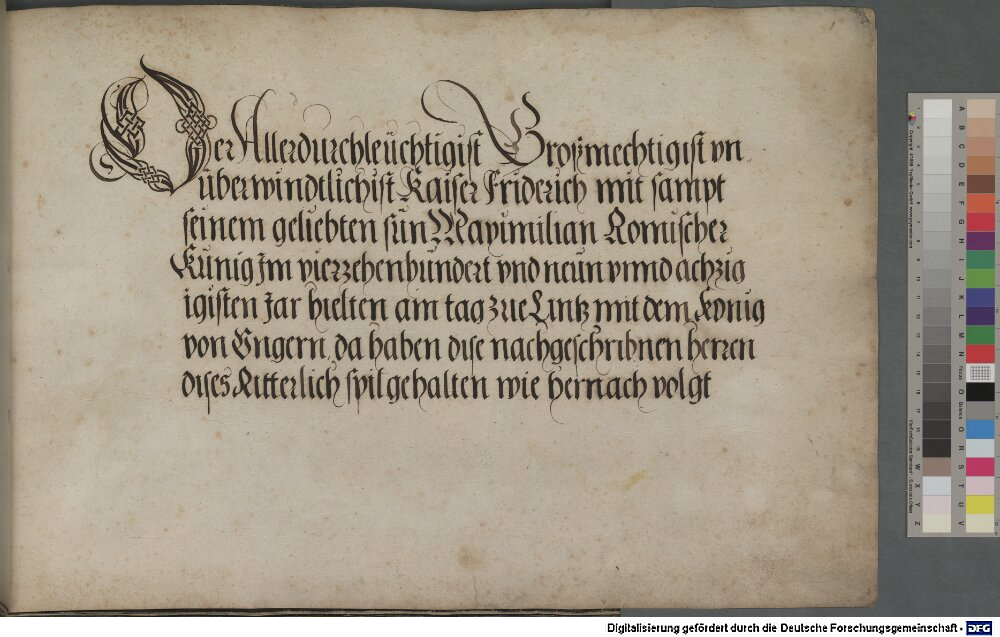 Der Allerdurchleüchtigist Großmechtigist vn
überwindtlichist Kaiser Friderich mit sampt
seinem geliebten sün Maximilian Romischer
Künig Im vierzehenhundert vnd neun vnnd achzig
igisten Jar hielten am tag zue Lintz mit dem König
von Vngern. da haben dise nachgeschribnen herren
dises Ritterlich spil gehalten wie hernach volgt
Digitalisierung gefördert durch die Deutsche Forschungsgemeinschaft - DFG